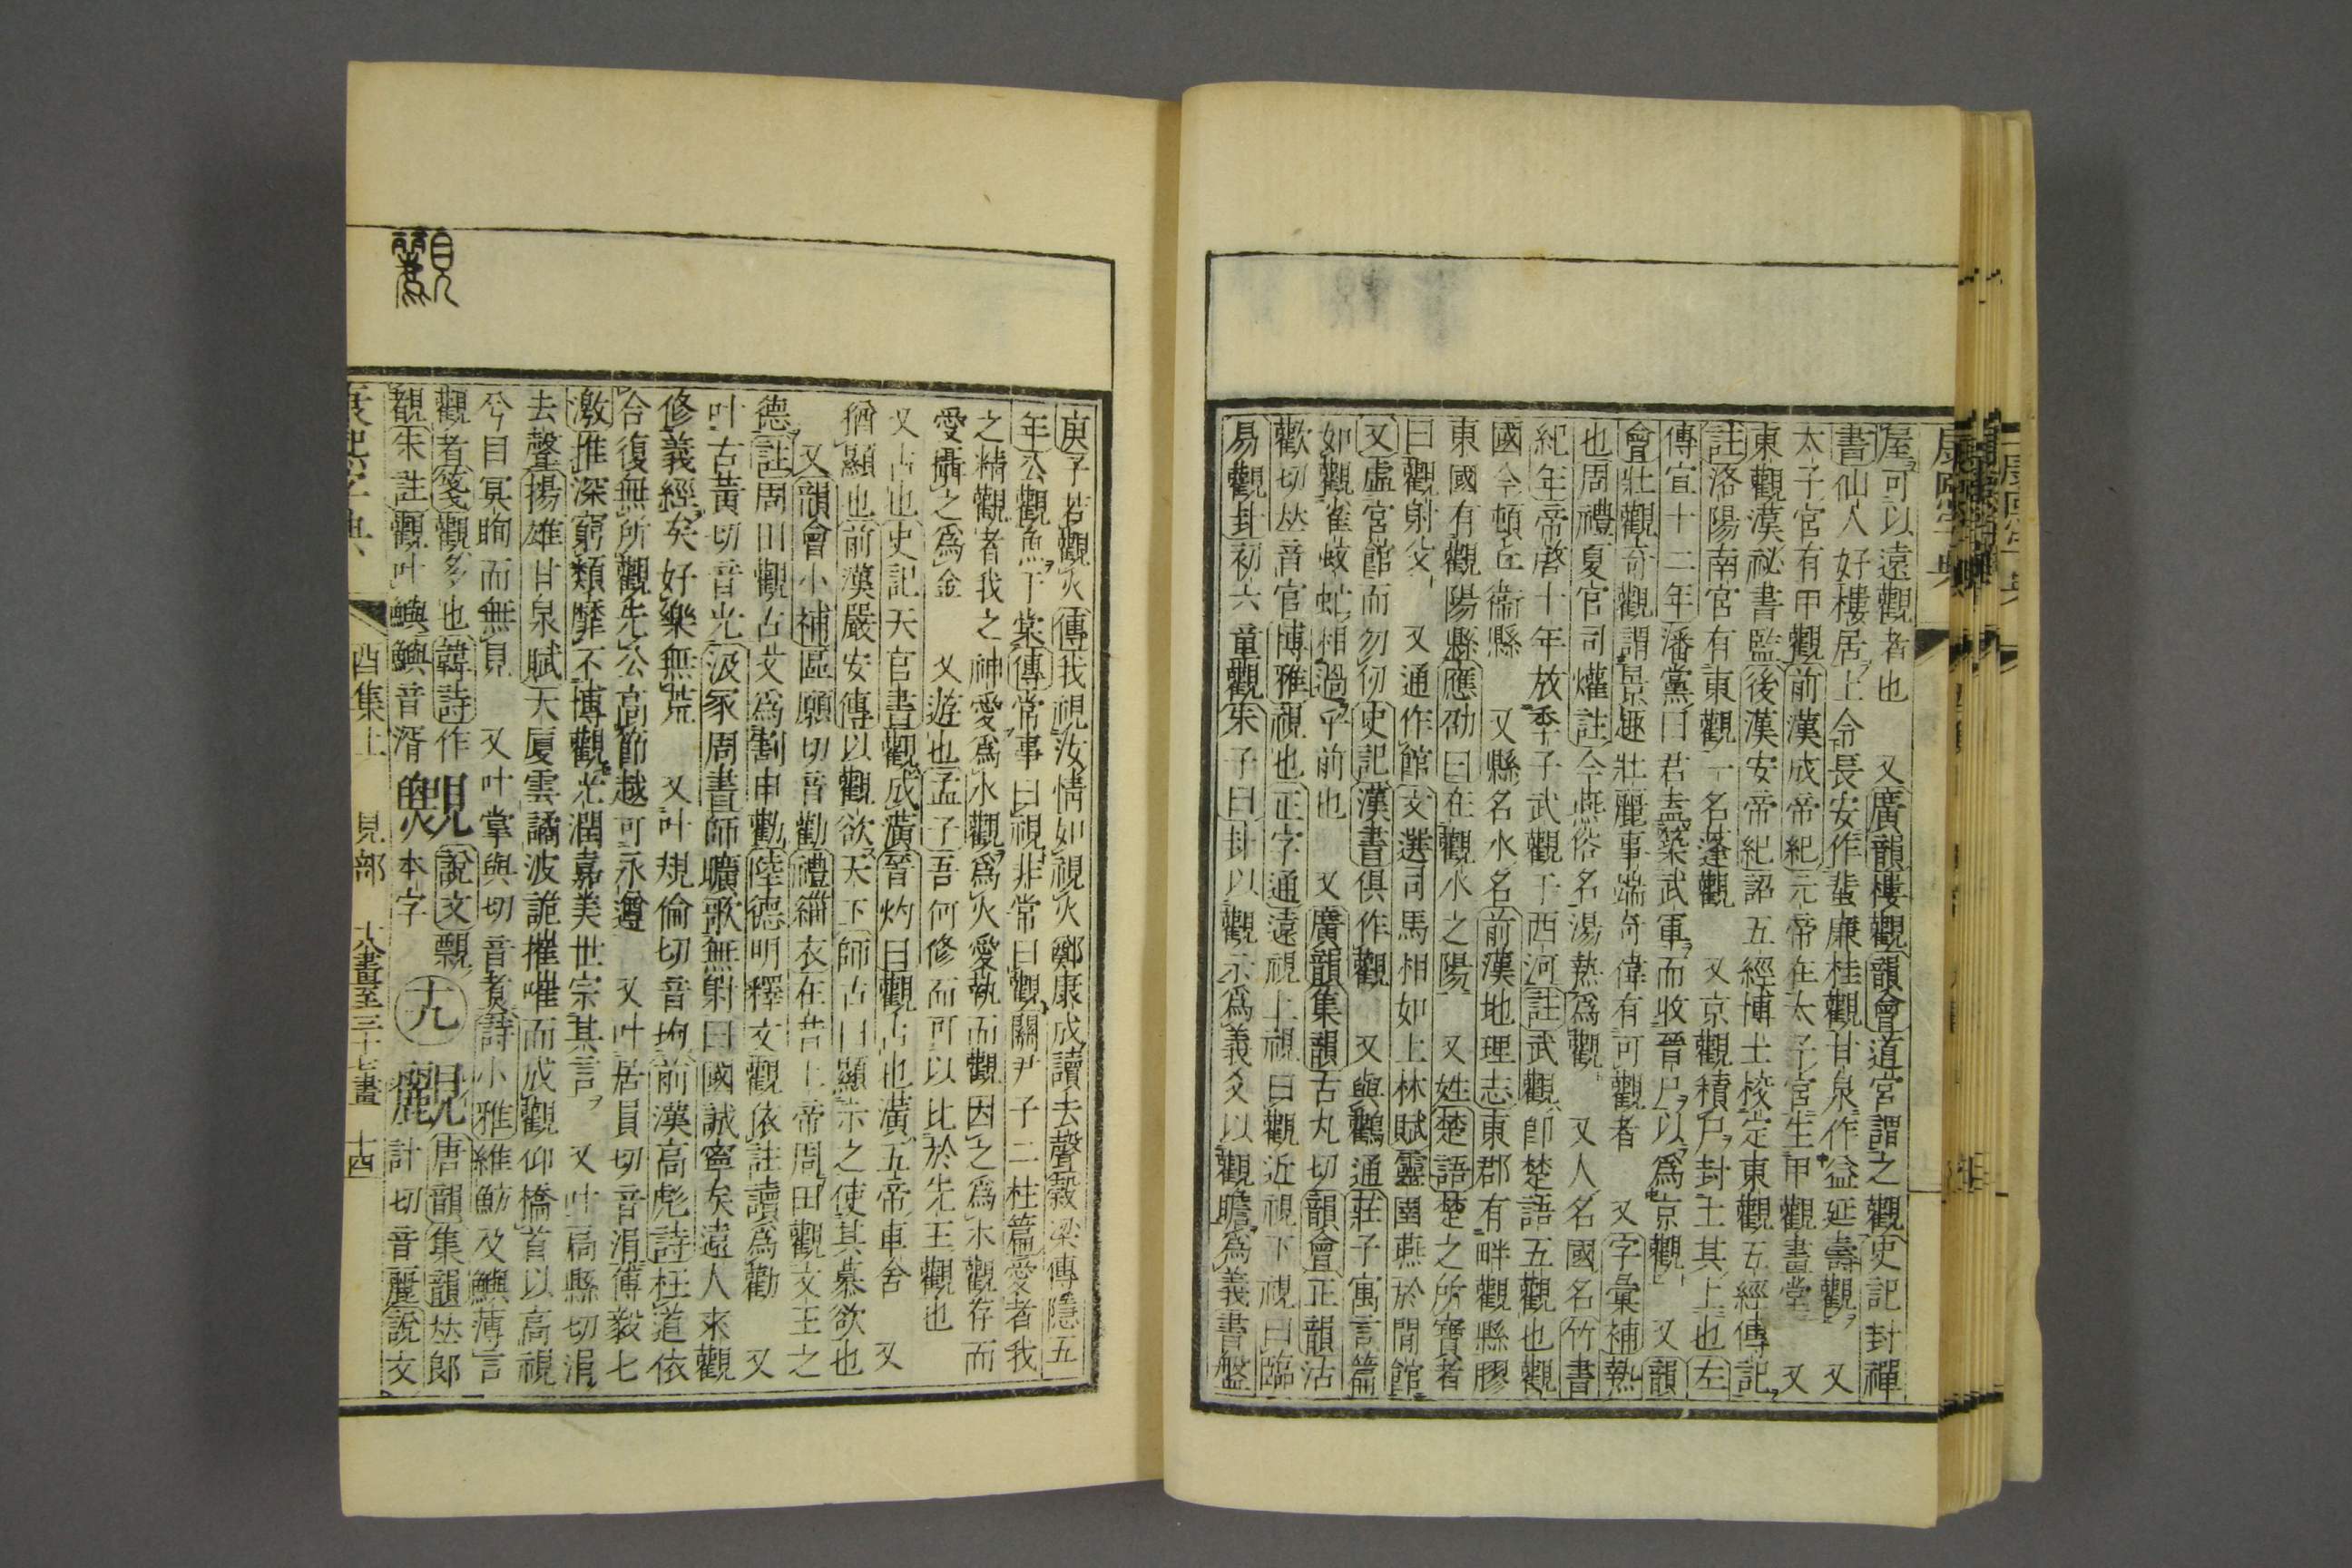 屋可以遠觀者也　又廣韻樓觀韻會道宮謂之觀史記封禪
書仙人好樓居上令長安作蜚廉桂觀甘泉作益延壽觀　又
太子宮有甲觀前漢成帝紀元帝在太子宮生甲觀畫堂　又
東觀漢祕書監後漢安帝紀詔五經博士校定東觀五經傳記
註洛陽南宮有東觀一名蓬觀　又京觀積尸封土其上也左
傳宣十二年潘黨曰君盍築武軍而收晉尸以爲京觀　又韻
會壯觀奇觀謂景趣壯麗事端奇偉有可觀者　又字彙補熱
也周禮夏官司爟註今燕俗名湯熱爲觀　又人名國名竹書
紀年帝啓十年放季子武觀于西河註武觀卽楚語五觀也觀
國今頓丘衞縣　又縣名水名前漢地理志東郡有畔觀縣膠
東國有觀陽縣應劭曰在觀水之陽　又姓楚語楚之所寶者
曰觀射父　又通作館文選司馬相如上林賦靈圄燕於閒館
又虛宮館而勿仞史記漢書俱作觀　又與鸛通莊子寓言篇
如觀雀蚊虻相過乎前也　又廣韻集韻古丸切韻會正韻沽
歡切𠀤音官博雅視也正字通遠視上視曰觀近視下視曰臨
易觀卦初六童觀朱子曰卦以觀示爲義爻以觀瞻爲義書盤
庚予若觀火傳我視汝情如視火鄭康成讀去聲穀梁傳隱五
年公觀魚于棠傳常事曰視非常曰觀關尹子二柱篇愛者我
之精觀者我之神愛爲水觀爲火愛執而觀因之爲木觀存而
愛攝之爲金　又遊也孟子吾何修而可以比於先王觀也
又占也史記天官書觀成潢晉灼曰觀占也潢五帝車舍　又
猶顯也前漢嚴安傳以觀欲天下師古曰顯示之使其慕欲也
又韻會小補區願切音勸禮緇衣在昔上帝周田觀文王之
德註周田觀古文爲割申勸陸德明釋文觀依註讀爲勸　又
叶古黃切音光汲冢周書師曠歌無射曰國誠寧矣遠人來觀
修義經矣好樂無荒　又叶規倫切音均前漢高彪詩枉道依
合復無所觀先公高節越可永遵　又叶居員切音涓傅毅七
激推深窮類靡不博觀光潤嘉美世宗其言　又叶扃縣切涓
去聲揚雄甘泉賦天廈雲譎波詭摧嗺而成觀仰橋首以高視
兮目冥眴而無見　又叶掌與切音煑詩小雅維魴及鱮薄言
觀者箋觀多也韓詩作
覩朱註觀叶鱮鱮音湑
說文覞
本字
十九
覼
唐韻集韻𠀤郎
計切音麗說文
康熙字典
酉集上　見部　十八畫至三十七畫　十四